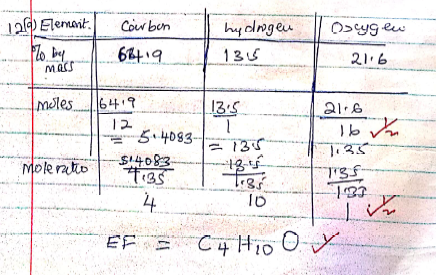 12(a) Element. Carbon hydrogen Oxygen
% by mass 64.9 13.5 21.6
moles 64.9/12 13.5/1 21.6/16 ✓½
= 5.4083 = 13.5 1.35
Mole ratio 5.4083/1.35 13.5/1.35 1.35/1.35
4 10 1 ✓½
EF = C4H10O ✓1